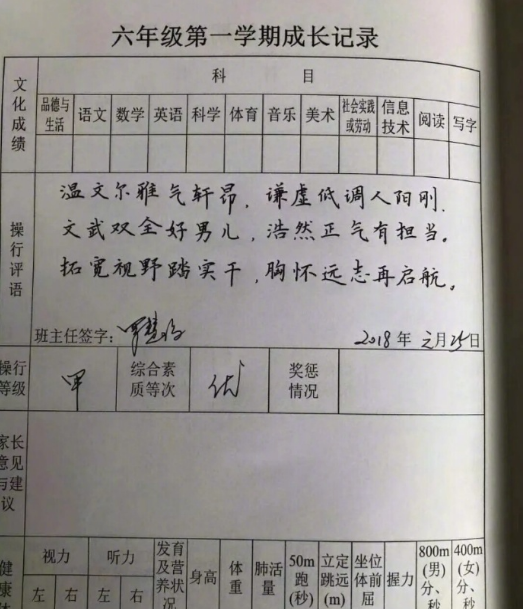 六年级第一学期成长记录
文化成绩
科 目
品德与生活 语文 数学 英语 科学 体育 音乐 美术 社会实践或劳动 信息技术 阅读 写字
操行评语
温文尔雅气轩昂，谦虚低调人阳刚.
文武双全好男儿，浩然正气有担当。
拓宽视野踏实干，胸怀远志再启航。
班主任签字：
2018年元月25日
操行等级 甲 综合素质等次 优 奖惩情况
家长意见与建议
健康体
视力 听力 发育及营养状况 身高 体重 肺活量 50m跑(秒) 立定跳远(m) 坐位体前屈 握力 800m(男)分、秒 400m(女)分、秒
左 右 左 右